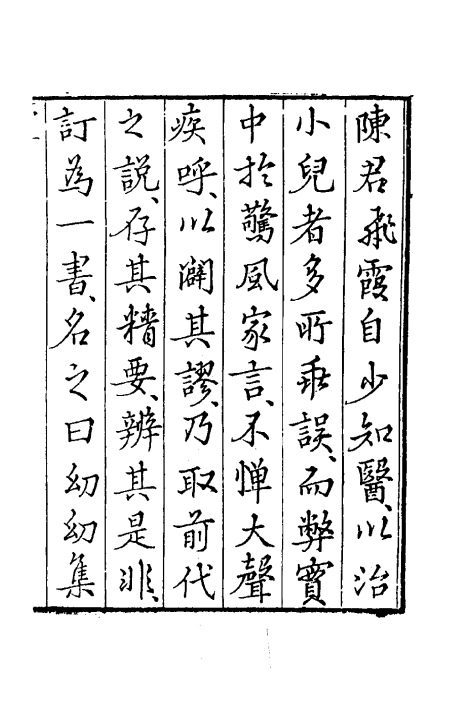 陳君飛霞自少知醫、以治
小兒者多所乖誤、而弊實
中於驚風家言、不憚大聲
疾呼、以闢其謬、乃取前代
之說、存其精要、辨其是非、
訂為一書、名之曰幼幼集